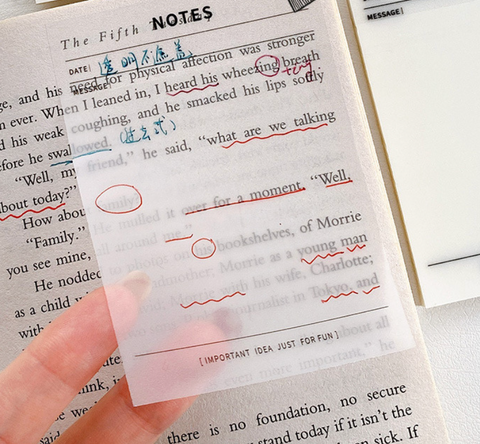 The Fifth
NOTES
DATE|
透明不遮盖
MESSAGE|
MESSAGE|
need for physical affection was stronger
ge, and his
n ever. When I leaned in, I heard his wheezing breath
try
d his weak coughing, and he smacked his lips softly
(过去式)
efore he swallowed.
friend," he said, "what are we talking
"Well, my
about today?"
Family?"
over for a moment. "Well,
How abou
He mulled it
"Family."
all around me."
you see mine,
photo, on his bookshelves, of Morrie
He nodded
grandmother, Morrie as a young man
as a child w
Morrie with his wife, Charlotte;
with
journalist in Tokyo, and
[IMPORTANT IDEA JUST FOR FUN]
about all
even more important," he
there is no foundation, no secure
stand today if it isn't the
sick. If